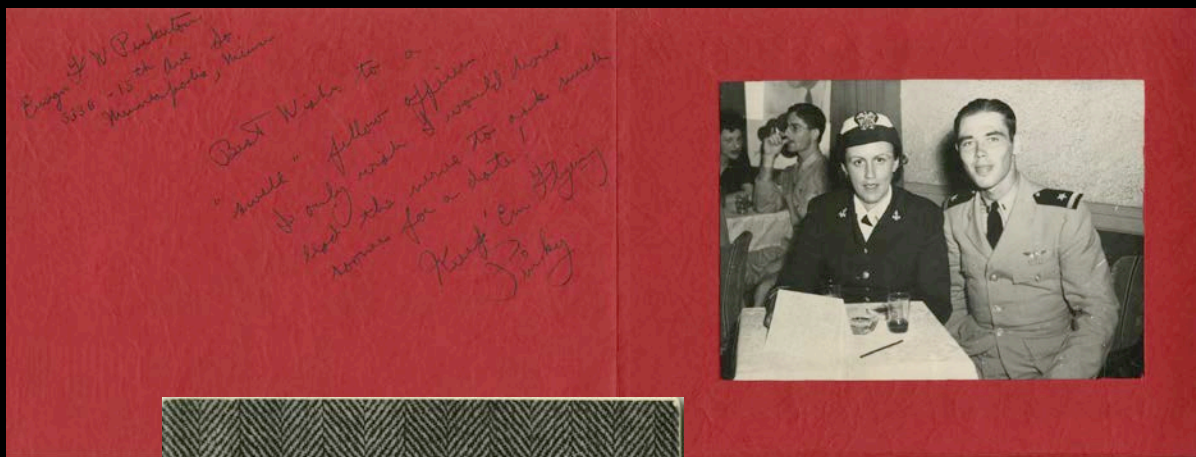 Ensign F W Pinkerton
15th Ave So
Minneapolis, Minn
Best Wishes to a
"swell" fellow officer.
I only wish I would have
had the nerve to ask much
sooner for a date!
Keep 'Em Flying
Pinky